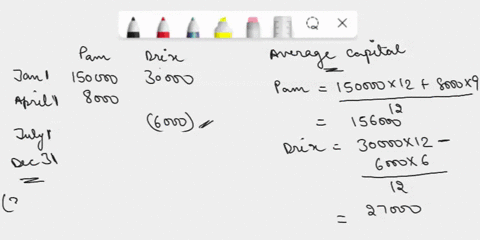 Pam Drix
Jan 1 150000 30000
April 1 8000
July 1 (6000)
Dec 31
(
Average Capital
Pam = 150000 x 12 + 8000 x 9
12
= 156000
Drix = 30000 x 12 -
6000 x 6
12
= 27000